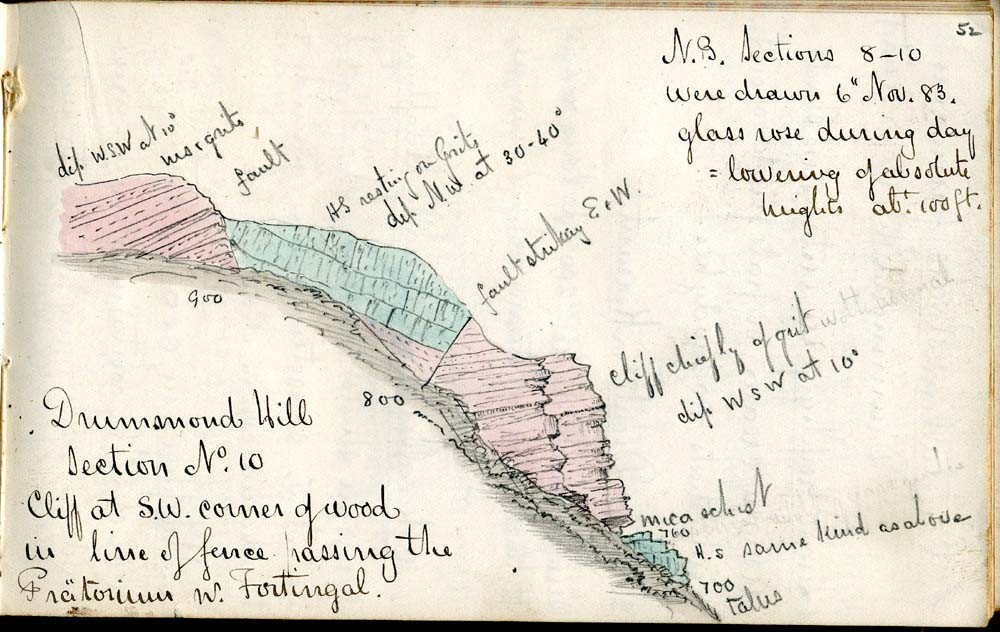 52
N.B. Sections 8-10
were drawn 6" Nov. 83.
glass rose during day
= lowering of absolute
heights abt. 100 ft.
dip W.S.W at 10°
ms & grits
fault
HS resting on Grits
dip N.W. at 30-40°
fault striking E & W.
900
800
cliff chiefly of grit
dip W S W at 10°
Drummond Hill
Section No. 10
Cliff at S.W. corner of wood
in line of fence passing the
Prätorium nr. Fortingal.
mica schist
760
H.S same kind as above
700
talus